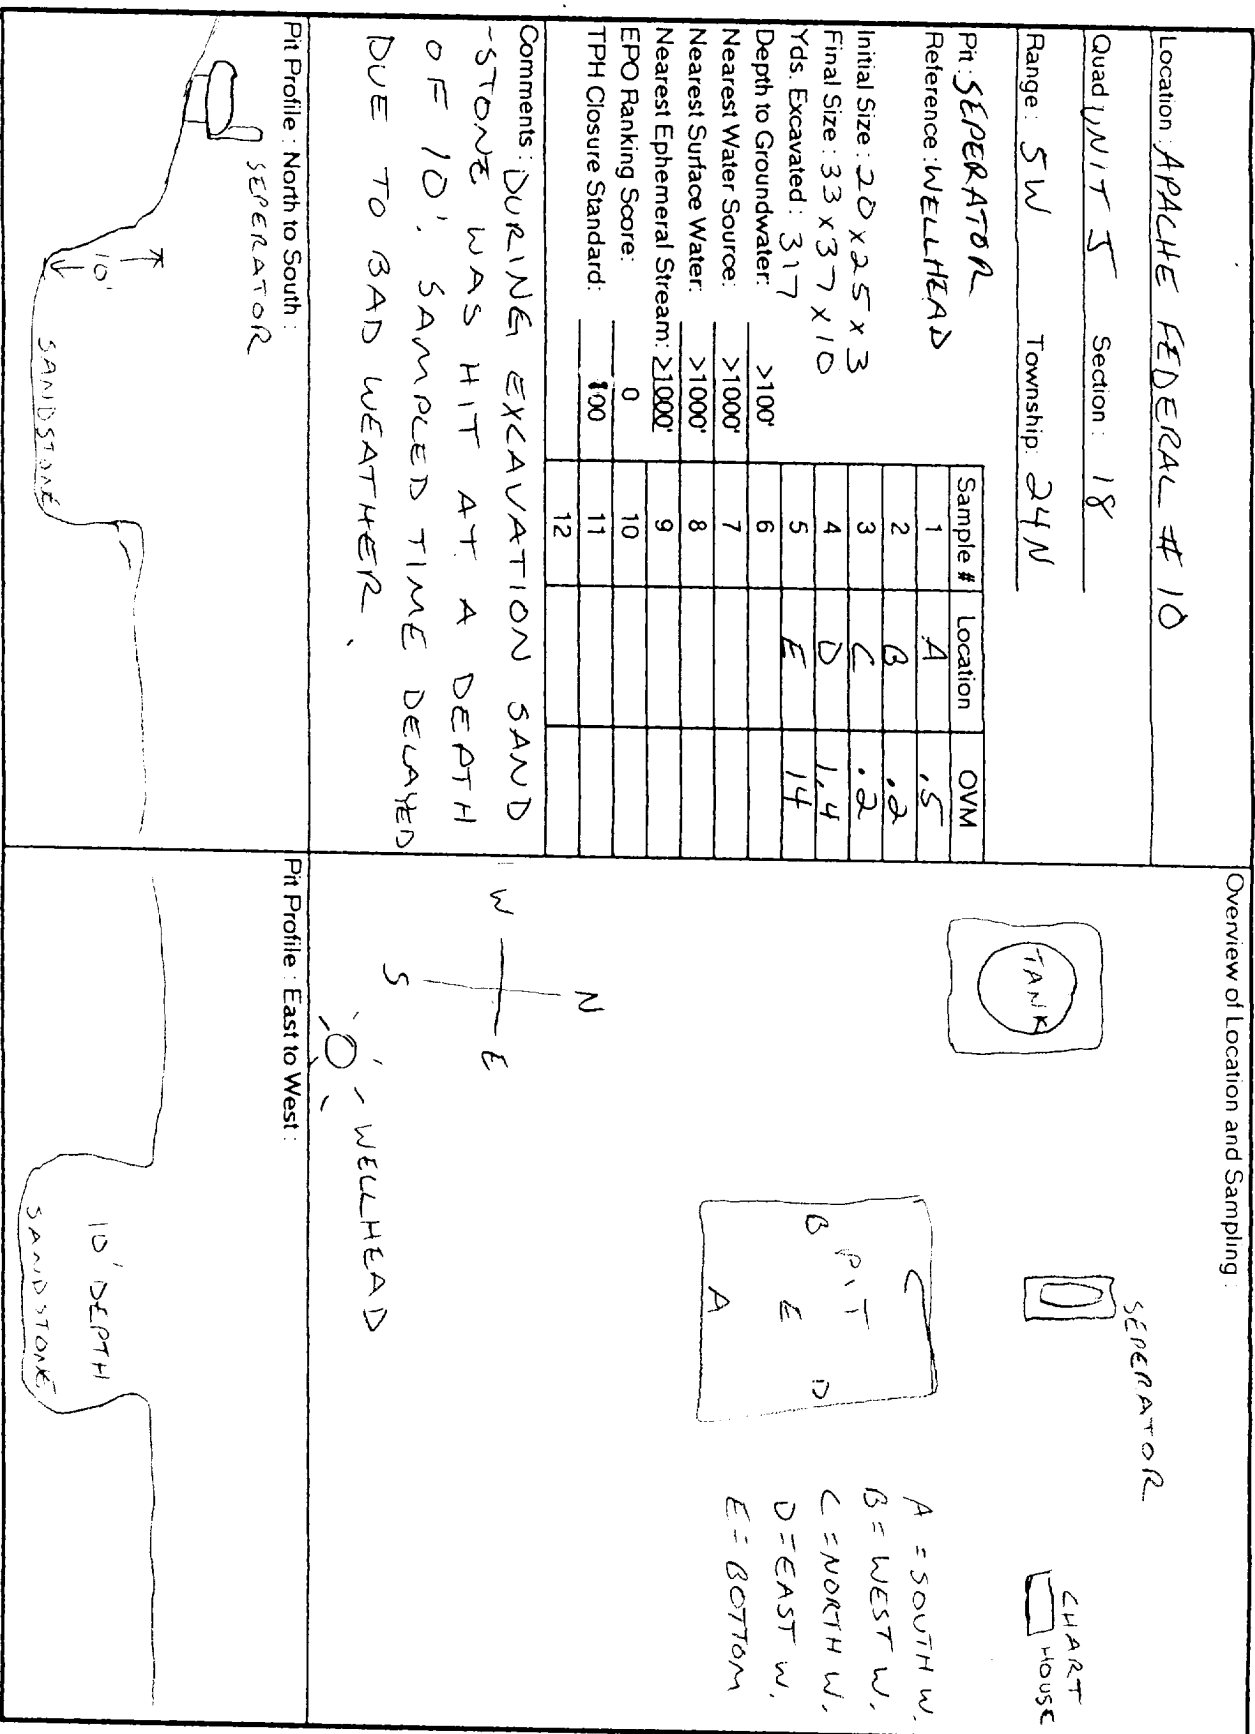 Location: APACHE FEDERAL # 10
Quad UNIT J Section: 18
Range: 5W Township: 24N
Pit: SEPERATOR
Reference: WELLHEAD
Initial Size: 20x25x3
Final Size: 33x37x10
Yds. Excavated: 317
Depth to Groundwater: >100'
Nearest Water Source: >1000'
Nearest Surface Water: >1000'
Nearest Ephemeral Stream: >1000'
EPO Ranking Score: 0
TPH Closure Standard: 100
Sample # Location OVM
1 A .5
2 B .2
3 C .2
4 D 1.4
5 E 14
6
7
8
9
10
11
12
Comments: DURING EXCAVATION SAND
-STONE WAS HIT AT A DEPTH
OF 10'. SAMPLED TIME DELAYED
DUE TO BAD WEATHER.
Overview of Location and Sampling:
TANK
SEPERATOR
CHART
HOUSE
C
PIT
B
E
D
A
A = SOUTH W.
B = WEST W.
C = NORTH W.
D = EAST W.
E = BOTTOM
N
W
E
S
WELLHEAD
Pit Profile: North to South:
SEPERATOR
10'
SANDSTONE
Pit Profile: East to West:
10' DEPTH
SANDSTONE